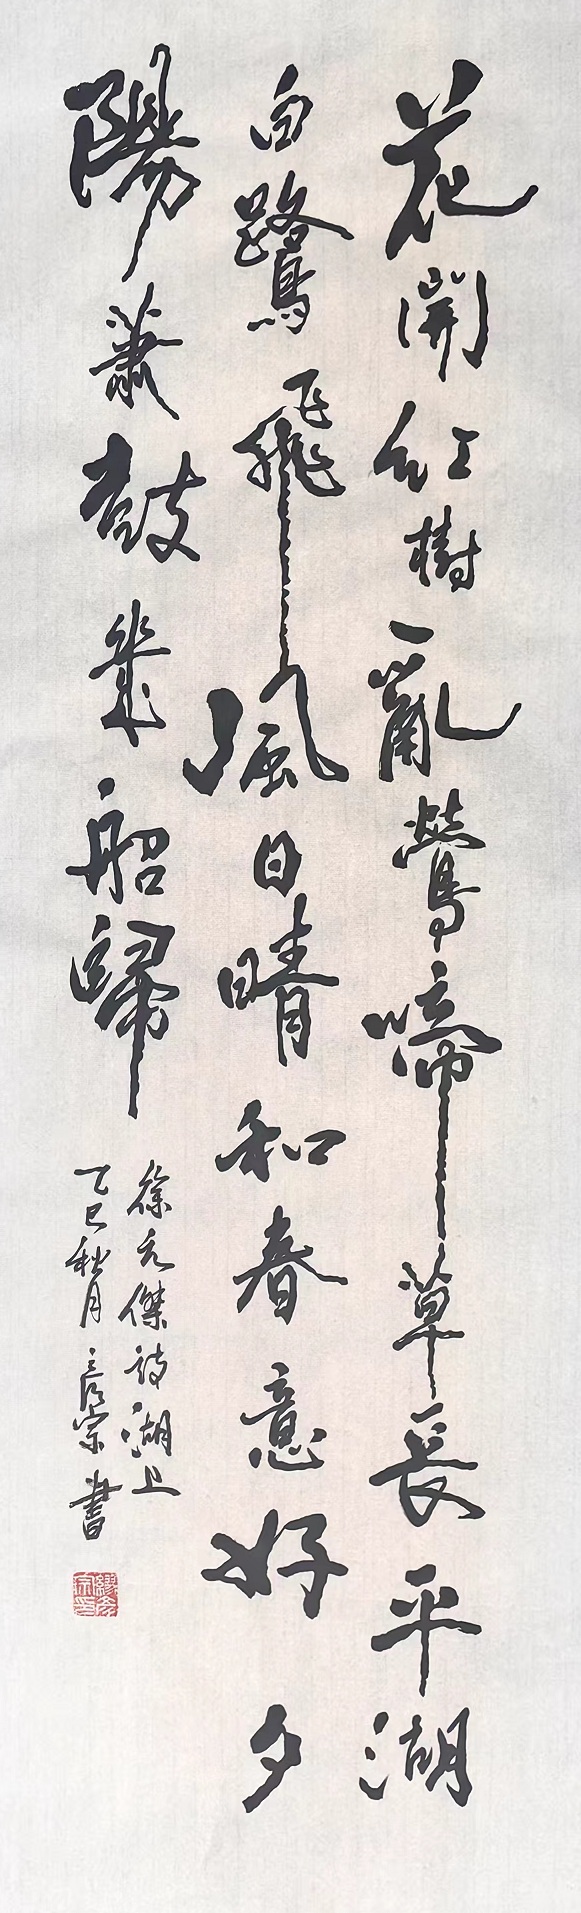 花開紅樹亂鶯啼草長平湖
白鷺飛風日晴和春意好夕
陽蕭鼓幾船歸
徐元傑詩湖上
乙巳秋月彥宗書